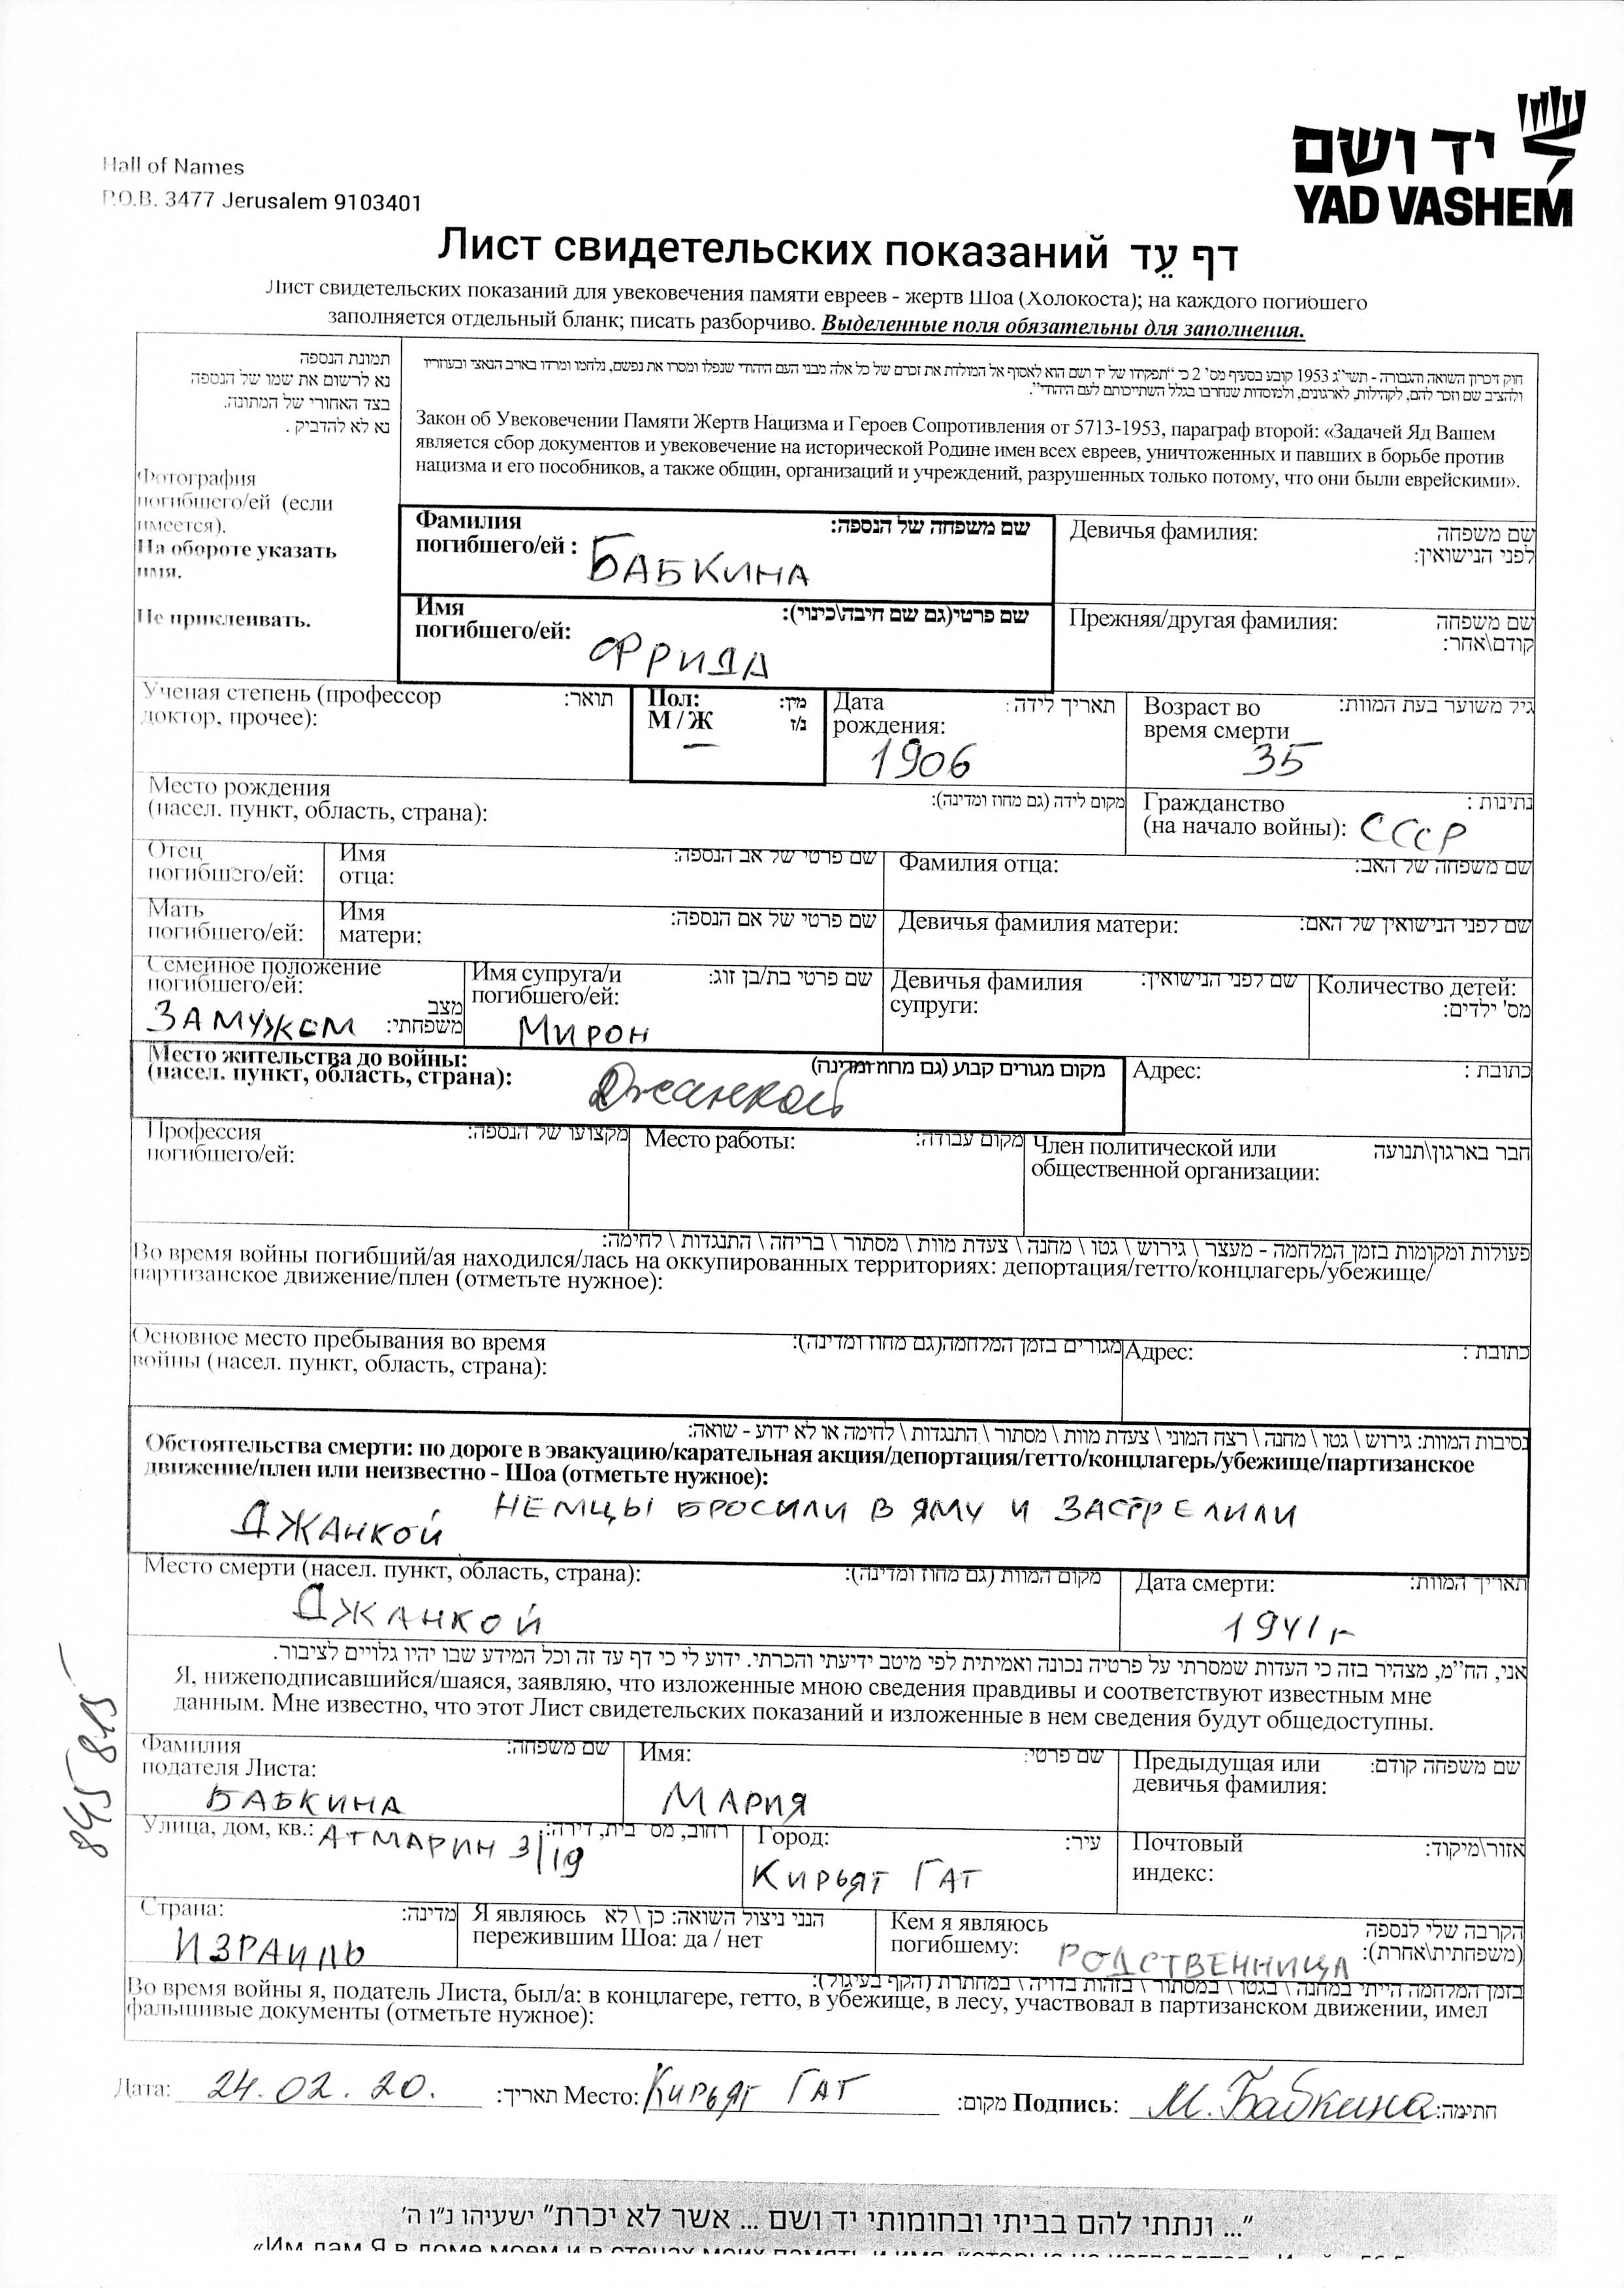 יד ושם
YAD VASHEM
Hall of Names
P.O.B. 3477 Jerusalem 9103401
Лист свидетельских показаний דף עֵד
Лист свидетельских показаний для увековечения памяти евреев - жертв Шоа (Холокоста); на каждого погибшего
заполняется отдельный бланк; писать разборчиво. Выделенные поля обязательны для заполнения.
תמונת הנספה
נא לרשום את שמו של הנספה
בצד האחורי של המתונה.
נא לא להדביק .
Фотография
погибшего/ей (если
имеется).
На обороте указать
имя.
Не приклеивать.
חוק זיכרון השואה והגבורה - תשי״ג 1953 קובע בסעיף מס׳ 2 כי ״תפקידו של יד ושם הוא לאסוף אל המולדת את זכרם של כל אלה מבני העם היהודי שנפלו ומסרו את נפשם, נלחמו ומרדו באויב הנאצי ובעוזריו
ולהציב שם וזכר להם, לקהילות, לארגונים, ולמוסדות שנחרבו בגלל השתייכותם לעם היהודי״.
Закон об Увековечении Памяти Жертв Нацизма и Героев Сопротивления от 5713-1953, параграф второй: «Задачей Яд Вашем
является сбор документов и увековечение на исторической Родине имен всех евреев, уничтоженных и павших в борьбе против
нацизма и его пособников, а также общин, организаций и учреждений, разрушенных только потому, что они были еврейскими».
Фамилия שם משפחה של הנספה:
погибшего/ей : БАБКИНА
Девичья фамилия: שם משפחה
לפני הנישואין:
Имя שם פרטי(גם שם חיבה\כינוי):
погибшего/ей: ФРИДА
Прежняя/другая фамилия: שם משפחה
קודם\אחר:
Ученая степень (профессор תואר:
доктор, прочее):
Пол: מין:
М / Ж נ/ז
Дата תאריך לידה :
рождения:
1906
Возраст во גיל משוער בעת המוות:
время смерти
35
Место рождения
(насел. пункт, область, страна): מקום לידה (גם מחוז ומדינה):
Гражданство נתינות :
(на начало войны): СССР
Отец
погибшего/ей:
Имя שם פרטי של אב הנספה:
отца:
Фамилия отца: שם משפחה של האב:
Мать
погибшего/ей:
Имя שם פרטי של אם הנספה:
матери:
Девичья фамилия матери: שם לפני הנישואין של האם:
Семейное положение
погибшего/ей:
מצב
משפחתי:
ЗАМУЖЕМ
Имя супруга/и שם פרטי בת/בן זוג:
погибшего/ей:
МИРОН
Девичья фамилия שם לפני הנישואין:
супруги:
Количество детей:
מס' ילדים:
Место жительства до войны:
(насел. пункт, область, страна): מקום מגורים קבוע (גם מחוז ומדינה)
Джанкой
Адрес: כתובת :
Профессия מקצועו של הנספה:
погибшего/ей:
Место работы: מקום עבודה:
Член политической или חבר בארגון\תנועה
общественной организации:
פעולות ומקומות בזמן המלחמה - מעצר \ גירוש \ גטו \ מחנה \ צעדת מוות \ מסתור \ בריחה \ התנגדות \ לחימה:
Во время войны погибший/ая находился/лась на оккупированных территориях: депортация/гетто/концлагерь/убежище/
партизанское движение/плен (отметьте нужное):
Основное место пребывания во время מגורים בזמן המלחמה(גם מחוז ומדינה):
войны (насел. пункт, область, страна):
Адрес: כתובת :
נסיבות המוות: גירוש \ גטו \ מחנה \ רצח המוני \ צעדת מוות \ מסתור \ התנגדות \ לחימה או לא ידוע - שואה:
Обстоятельства смерти: по дороге в эвакуацию/карательная акция/депортация/гетто/концлагерь/убежище/партизанское
движение/плен или неизвестно - Шоа (отметьте нужное):
НЕМЦЫ БРОСИЛИ В ЯМУ И ЗАСТРЕЛИЛИ
ДЖАНКОЙ
Место смерти (насел. пункт, область, страна): מקום המוות (גם מחוז ומדינה):
ДЖАНКОЙ
Дата смерти: תאריך המוות:
1941 г
אני, הח״מ, מצהיר בזה כי העדות שמסרתי על פרטיה נכונה ואמיתית לפי מיטב ידיעתי והכרתי. ידוע לי כי דף עד זה וכל המידע שבו יהיו גלויים לציבור.
Я, нижеподписавшийся/шаяся, заявляю, что изложенные мною сведения правдивы и соответствуют известным мне
данным. Мне известно, что этот Лист свидетельских показаний и изложенные в нем сведения будут общедоступны.
845 815
Фамилия שם משפחה:
подателя Листа:
БАБКИНА
Имя: שם פרטי:
МАРИЯ
Предыдущая или שם משפחה קודם:
девичья фамилия:
Улица, дом, кв.: רחוב, מס בית, דירה:
АТМАРИН 3/19
Город: עיר:
КИРЬЯТ ГАТ
Почтовый אזור\מיקוד:
индекс:
Страна: מדינה:
ИЗРАИЛЬ
Я являюсь הנני ניצול השואה: כן \ לא
пережившим Шоа: да / нет
Кем я являюсь הקרבה שלי לנספה
погибшему: (משפחתית\אחרת):
РОДСТВЕННИЦА
בזמן המלחמה הייתי במחנה \ בגטו \ במסתור \ בזהות בדויה \ במחתרת (הקף בעיגול):
Во время войны я, податель Листа, был/а: в концлагере, гетто, в убежище, в лесу, участвовал в партизанском движении, имел
фальшивые документы (отметьте нужное):
Дата: 24.02.20. תאריך: Место: КИРЬЯТ ГАТ מקום: Подпись: М. Бабкина חתימה:
״... ונתתי להם בביתי ובחומותי יד ושם ... אשר לא יכרת״ ישעיהו נ״ו ה׳